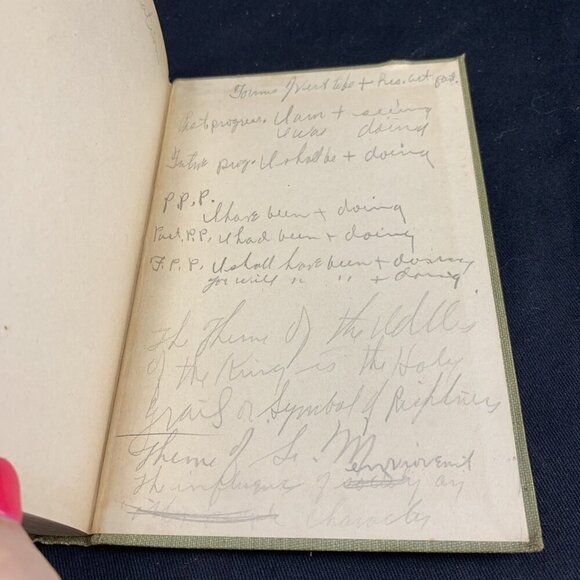 Forms of verb tobe + Pres. act part.
Past progress. I am + seeing
I was doing
Future prog. I shall be + doing
P.P.P.
I have been + doing
Past. P.P. I had been + doing
F.P.P. I shall have been + doing
you will " " + doing
The Theme of the Idylls
of the King is the Holy
Grail or Symbol of Rightness
Theme of S. M
enviroment
The influence of on
character